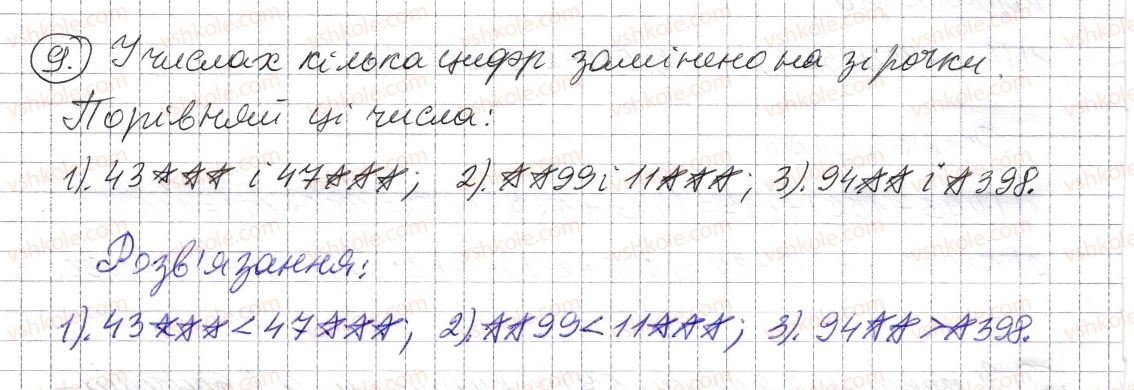 9. У числах кілька цифр замінено на зірочки.
Порівняй ці числа:
1). 43*** і 47***; 2). **99 і 11***; 3). 94** і *398.
Розв'язання:
1). 43*** < 47***; 2). **99 < 11***; 3). 94** > *398.